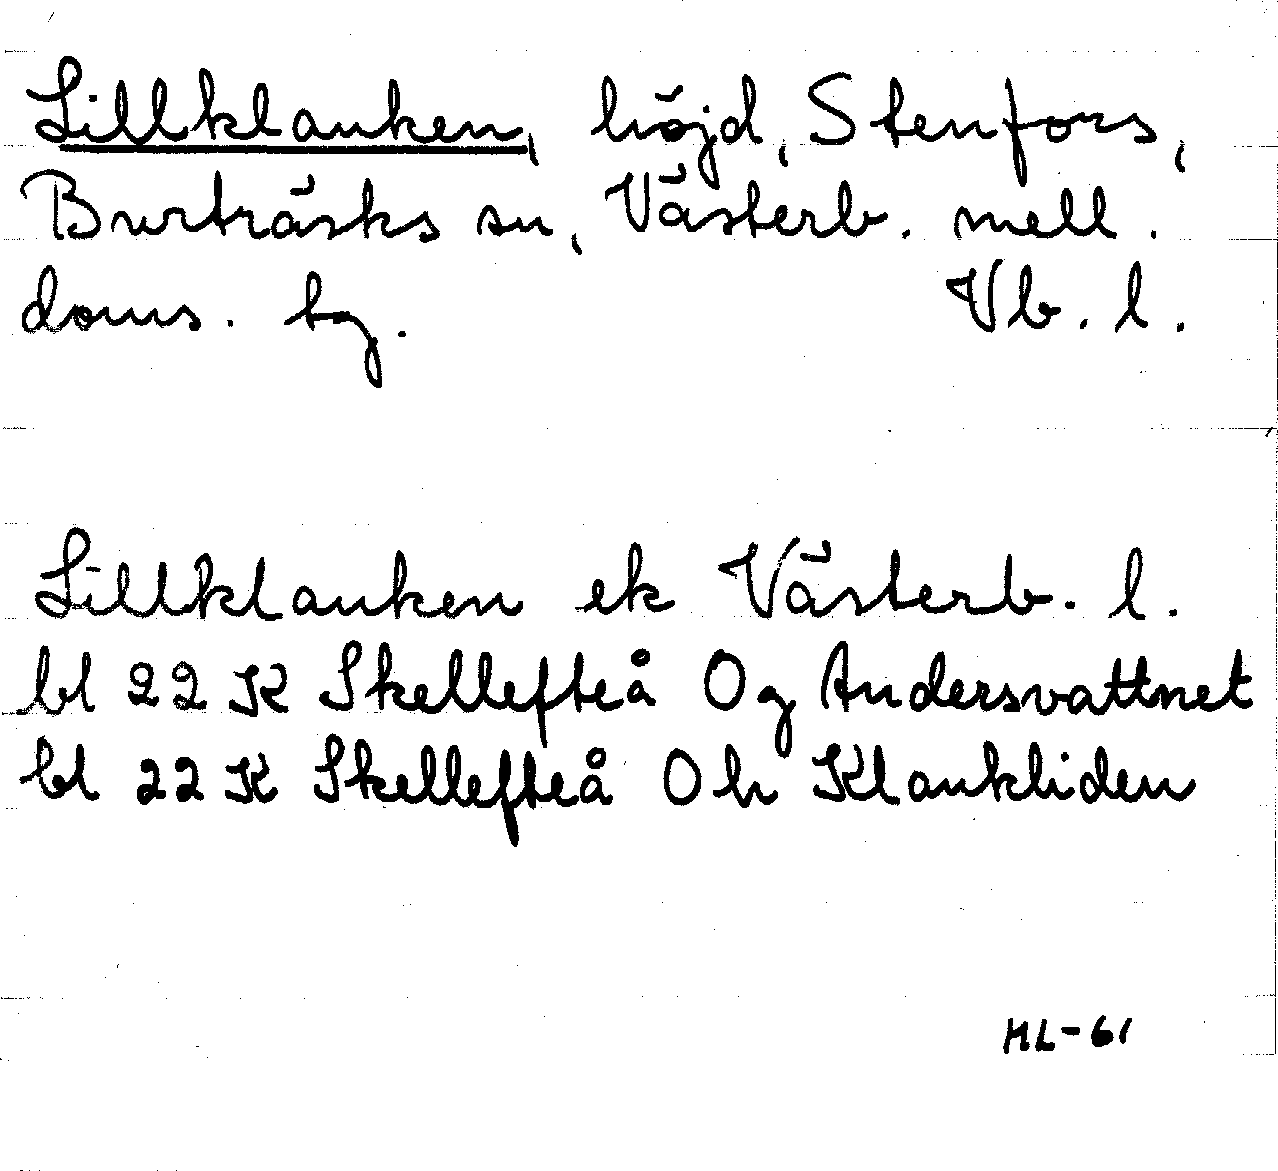 Lillklauken, höjd, Stenfors,
Burträsks sn, Västerb. mell.
doms. bg. Vb. l.
Lillklauken ek Västerb. l.
bl 22 K Skellefteå Og Andersvattnet
bl 22 K Skellefteå Oh Klaukliden
HL-61